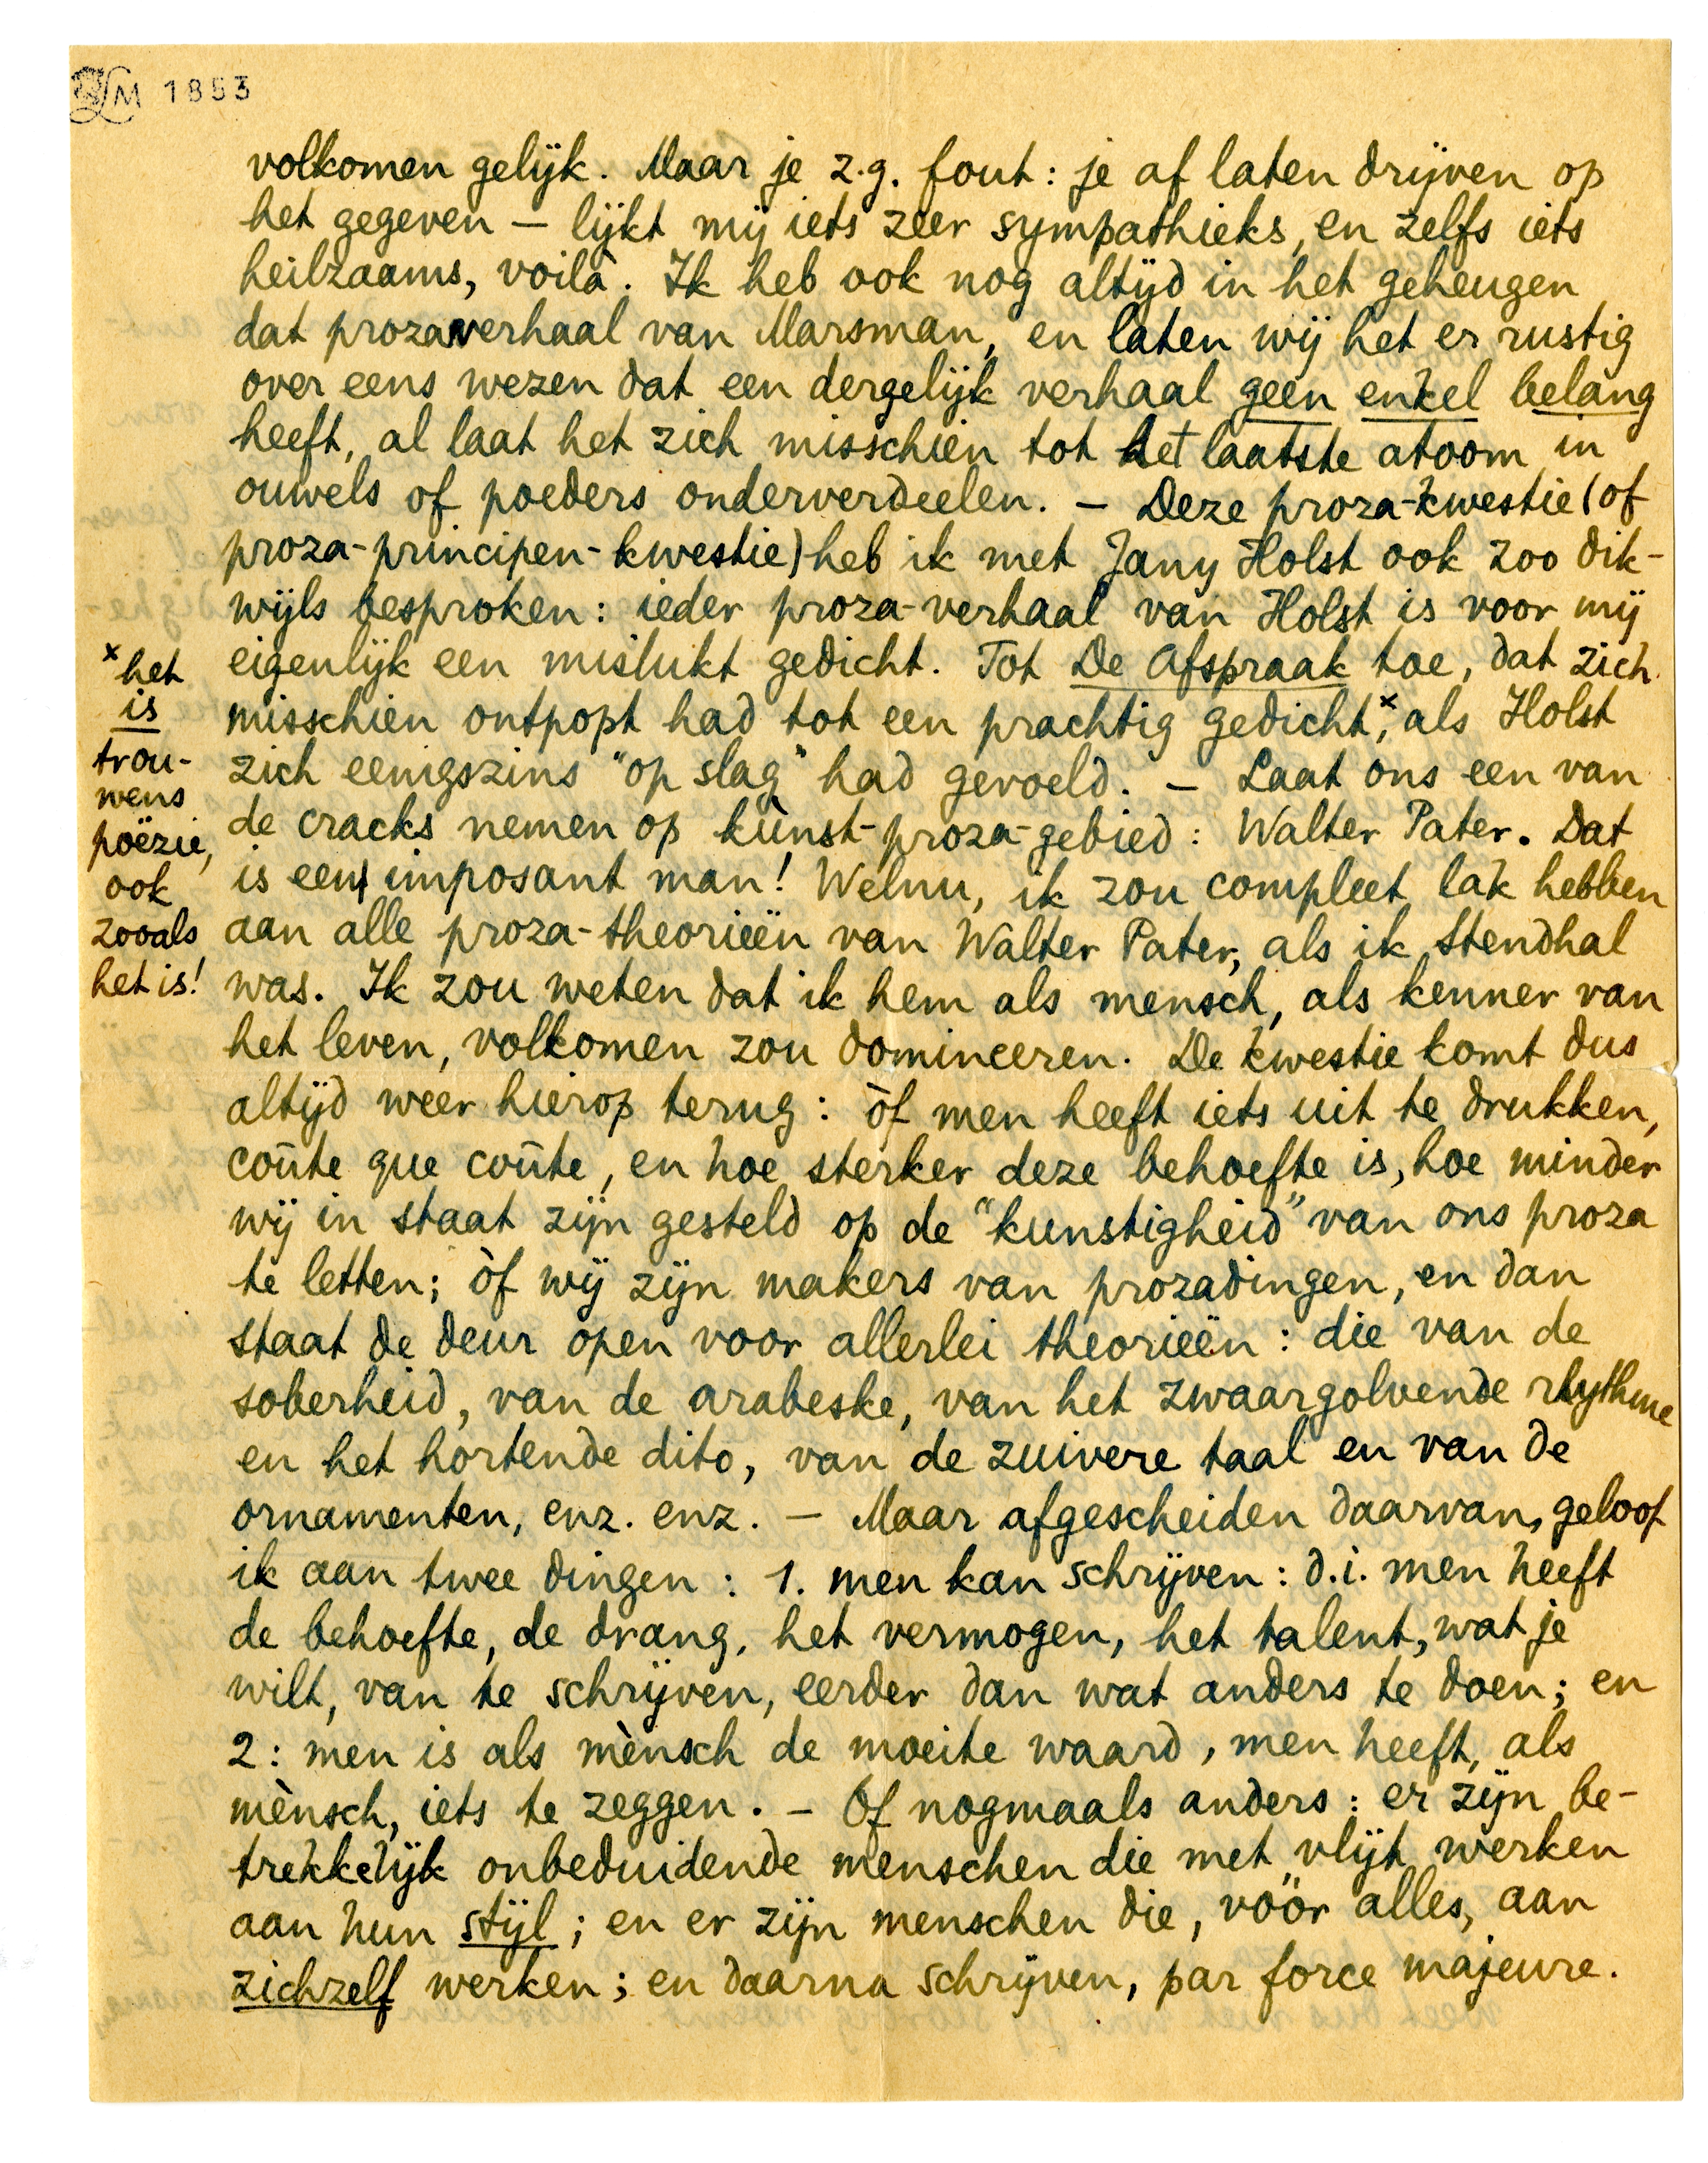 LM 1853
volkomen gelijk. Maar je z.g. fout: je af laten drijven op
het gegeven — lijkt mij iets zeer sympathieks, en zelfs iets
heilzaams, voilà. Ik heb ook nog altijd in het geheugen
dat prozaverhaal van Marsman, en laten wij het er rustig
over eens wezen dat een dergelijk verhaal geen enkel belang
heeft, al laat het zich misschien tot het laatste atoom in
ouwels of poeders onderverdeelen. — Deze proza-kwestie (of
proza-principen-kwestie) heb ik met Jany Holst ook zoo dik-
wijls besproken: ieder proza-verhaal van Holst is voor mij
eigenlijk een mislukt gedicht. Tot De Afspraak toe, dat zich
misschien ontpopt had tot een prachtig gedicht,ˣ als Holst
zich eenigszins "op slag" had gevoeld. — Laat ons een van
de cracks nemen op kùnst-proza-gebied: Walter Pater. Dat
is een imposant man! Welnu, ik zou compleet lak hebben
aan alle proza-theorieën van Walter Pater, als ik Stendhal
was. Ik zou weten dat ik hem als mensch, als kenner van
het leven, volkomen zou domineeren. De kwestie komt dus
altijd weer hierop terug: òf men heeft iets uit te drukken,
coûte que coûte, en hoe sterker deze behoefte is, hoe minder
wij in staat zijn gesteld op de "kunstigheid" van ons proza
te letten; òf wij zijn makers van prozadingen, en dan
staat de deur open voor allerlei theorieën: die van de
soberheid, van de arabeske, van het zwaargolvende rhythme
en het hortende dito, van de zuivere taal en van de
ornamenten, enz. enz. — Maar afgescheiden daarvan, geloof
ik aan twee dingen: 1. men kan schrijven: d.i. men heeft
de behoefte, de drang, het vermogen, het talent, wat je
wilt, van te schrijven, eerder dan wat anders te doen; en
2: men is als mènsch de moeite waard, men heeft, als
mènsch, iets te zeggen. — Of nogmaals anders: er zijn be-
trekkelijk onbeduidende menschen die met vlijt werken
aan hun stijl; en er zijn menschen die, vóór alles, aan
zichzelf werken; en daarna schrijven, par force majeure.
ˣ het
is
trou-
wens
poëzie,
ook
zooals
het is!